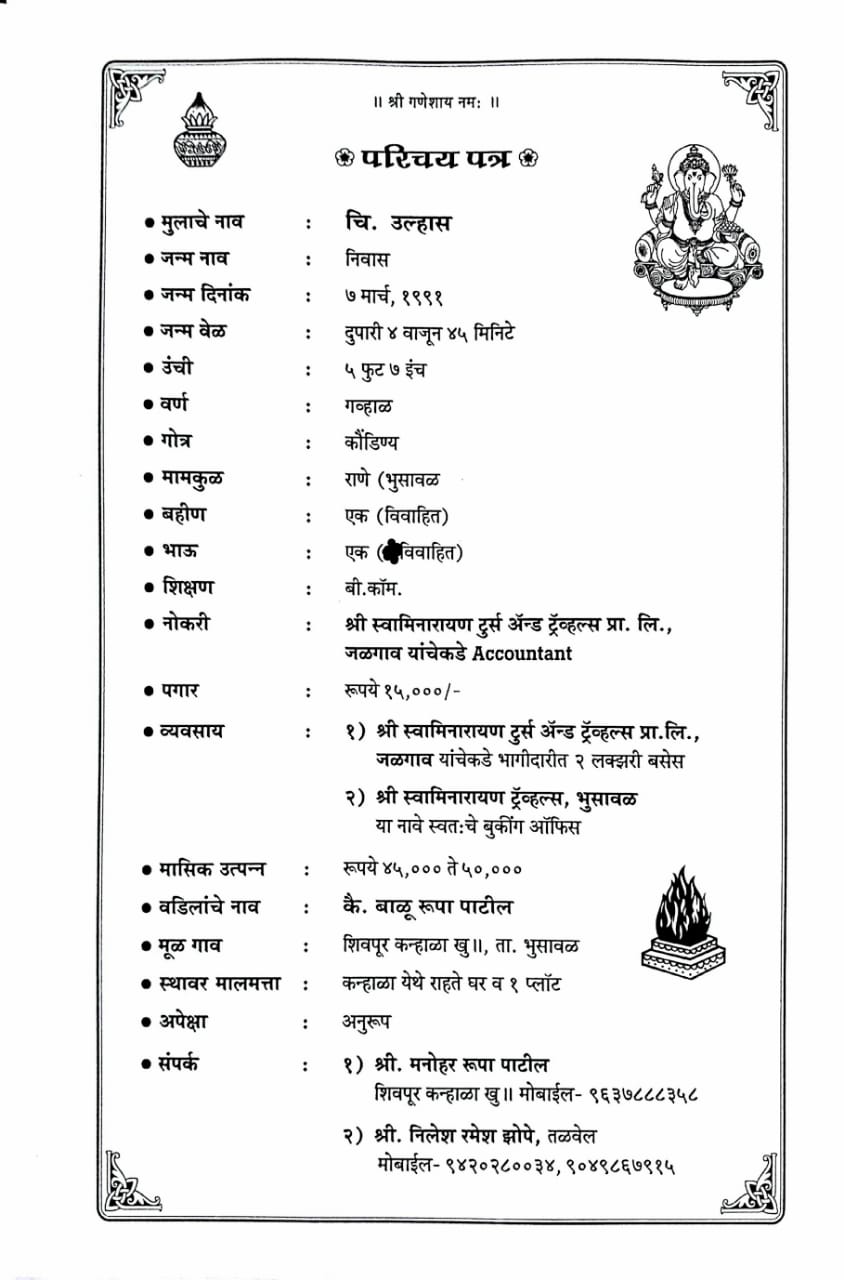 ॥ श्री गणेशाय नमः ॥
परिचय पत्र
• मुलाचे नाव : चि. उल्हास
• जन्म नाव : निवास
• जन्म दिनांक : ७ मार्च, १९९१
• जन्म वेळ : दुपारी ४ वाजून ४५ मिनिटे
• उंची : ५ फुट ७ इंच
• वर्ण : गव्हाळ
• गोत्र : कौंडिण्य
• मामकुळ : राणे (भुसावळ
• बहीण : एक (विवाहित)
• भाऊ : एक (विवाहित)
• शिक्षण : बी.कॉम.
• नोकरी : श्री स्वामिनारायण टुर्स ॲन्ड ट्रॅव्हल्स प्रा. लि.,
जळगाव यांचेकडे Accountant
• पगार : रूपये १५,०००/-
• व्यवसाय : १) श्री स्वामिनारायण टुर्स ॲन्ड ट्रॅव्हल्स प्रा.लि.,
जळगाव यांचेकडे भागीदारीत २ लक्झरी बसेस
२) श्री स्वामिनारायण ट्रॅव्हल्स, भुसावळ
या नावे स्वतःचे बुकींग ऑफिस
• मासिक उत्पन्न : रूपये ४५,००० ते ५०,०००
• वडिलांचे नाव : कै. बाळू रूपा पाटील
• मूळ गाव : शिवपूर कन्हाळा खु॥, ता. भुसावळ
• स्थावर मालमत्ता : कन्हाळा येथे राहते घर व १ प्लॉट
• अपेक्षा : अनुरूप
• संपर्क : १) श्री. मनोहर रूपा पाटील
शिवपूर कन्हाळा खु॥ मोबाईल- ९६३७८८८३५८
२) श्री. निलेश रमेश झोपे, तळवेल
मोबाईल- ९४२०२८००३४, ९०४९८६७९१५